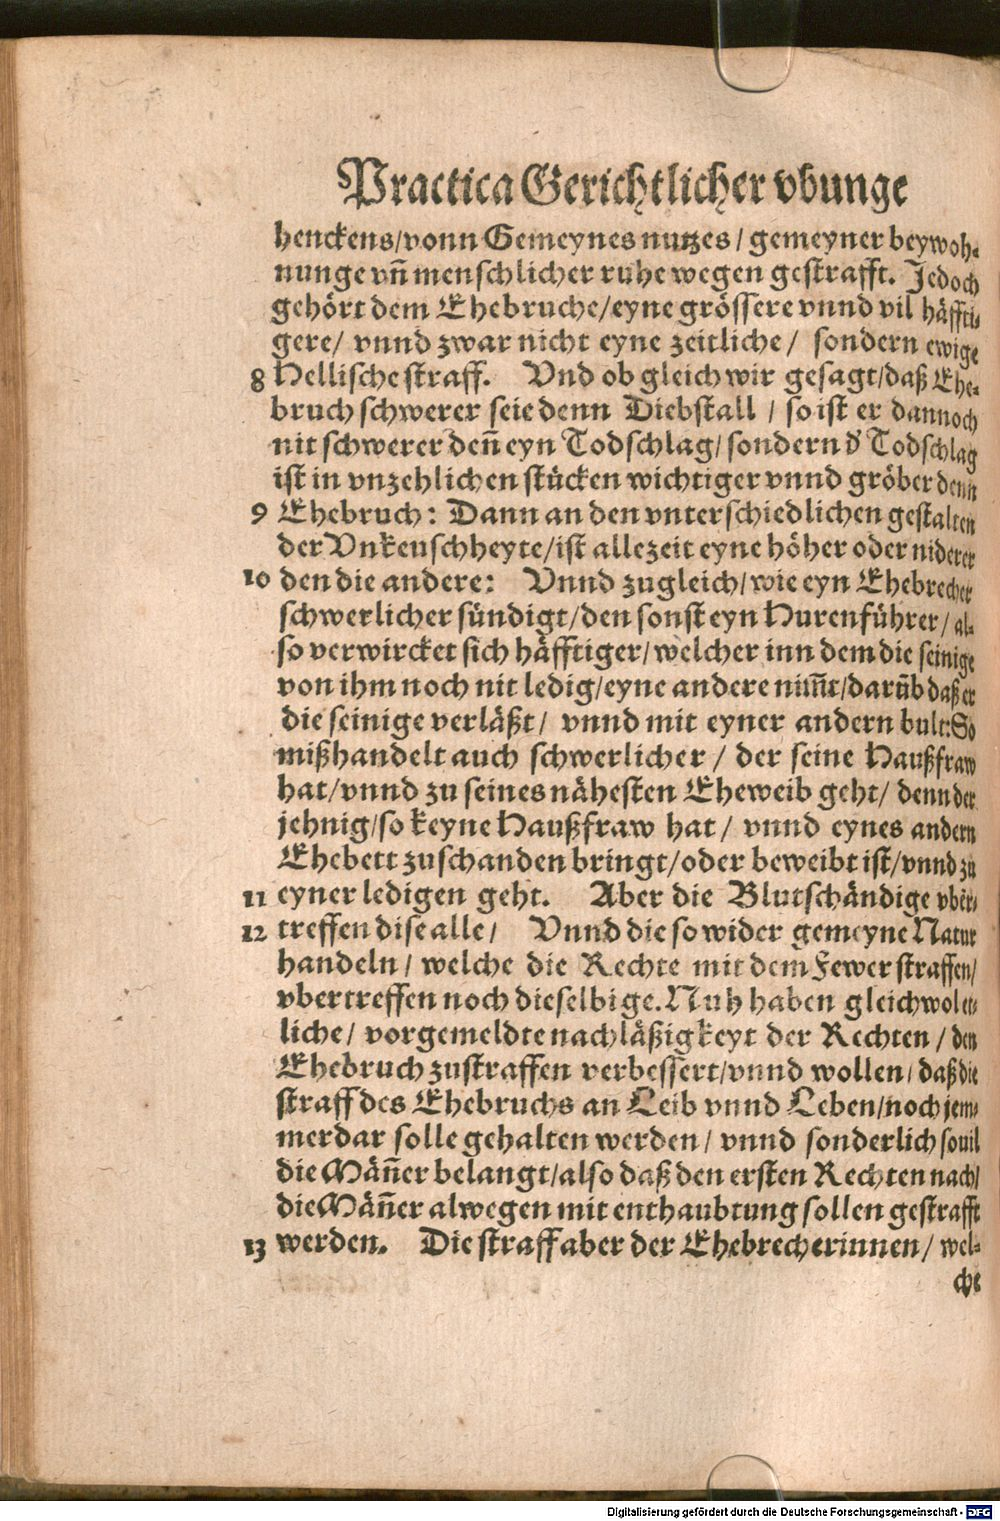 Practica Gerichtlicher vbunge
henckens/vonn Gemeynes nutzes / gemeyner beywoh-
nunge vn̄ menschlicher ruhe wegen gestrafft. Jedoch
gehört dem Ehebruche/eyne grössere vnnd vil häffti-
gere/ vnnd zwar nicht eyne zeitliche / sondern ewige
8 Hellische straff. Vnd ob gleich wir gesagt/daß Ehe-
bruch schwerer seie denn Diebstall / so ist er dannoch
nit schwerer den̄ eyn Todschlag/sondern d' Todschlag
ist in vnzehlichen stücken wichtiger vnnd gröber denn
9 Ehebruch: Dann an den vnterschiedlichen gestalten
der Vnkeuschheyte/ist allezeit eyne höher oder niderer
10 den die andere: Vnnd zugleich/wie eyn Ehebrecher
schwerlicher sündigt/den sonst eyn Hurenführer/ al-
so verwircket sich häfftiger/welcher inn dem die seinige
von ihm noch nit ledig/eyne andere nim̄t/darūb daß er
die seinige verläßt/ vnnd mit eyner andern bult: So
mißhandelt auch schwerlicher / der seine Haußfraw
hat/vnnd zu seines nähesten Eheweib geht/ denn der
jehnig/so keyne Haußfraw hat / vnnd eynes andern
Ehebett zuschanden bringt/oder beweibt ist/vnnd zu
11 eyner ledigen geht. Aber die Blutschändige vber-
12 treffen dise alle/ Vnnd die so wider gemeyne Natur
handeln/ welche die Rechte mit dem Fewer straffen/
vbertreffen noch dieselbige. Nuh haben gleichwol et-
liche/ vorgemeldte nachläßigkeyt der Rechten / den
Ehebruch zustraffen verbessert/vnnd wollen/ daß die
straff des Ehebruchs an Leib vnnd Leben/noch jem-
merdar solle gehalten werden/ vnnd sonderlich souil
die Män̄er belangt/also daß den ersten Rechten nach/
die Män̄er alwegen mit enthaubtung sollen gestrafft
13 werden. Die straff aber der Ehebrecherinnen/ wel-
che
Digitalisierung gefördert durch die Deutsche Forschungsgemeinschaft - DFG